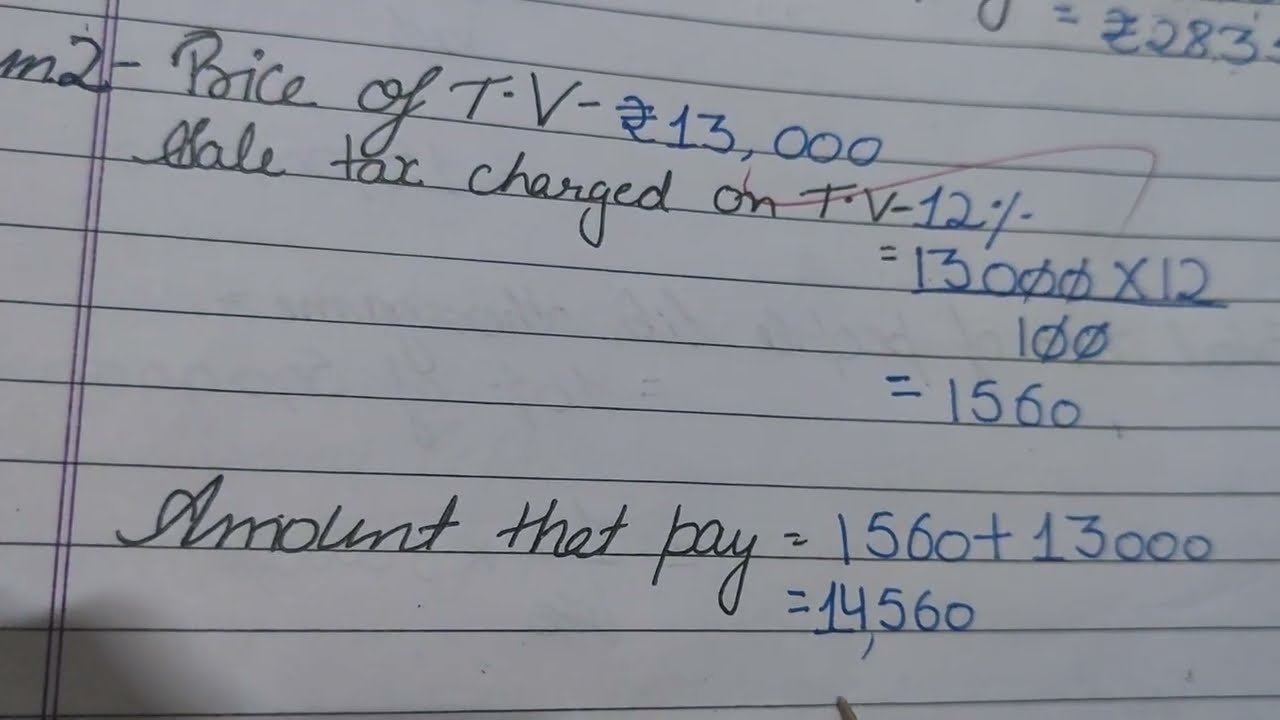 = ₹283
m2- Price of T.V- ₹13,000
Sale tax charged on T.V-12%
= 13000 X 12
100
= 1560
Amount that pay = 1560 + 13000
= 14,560